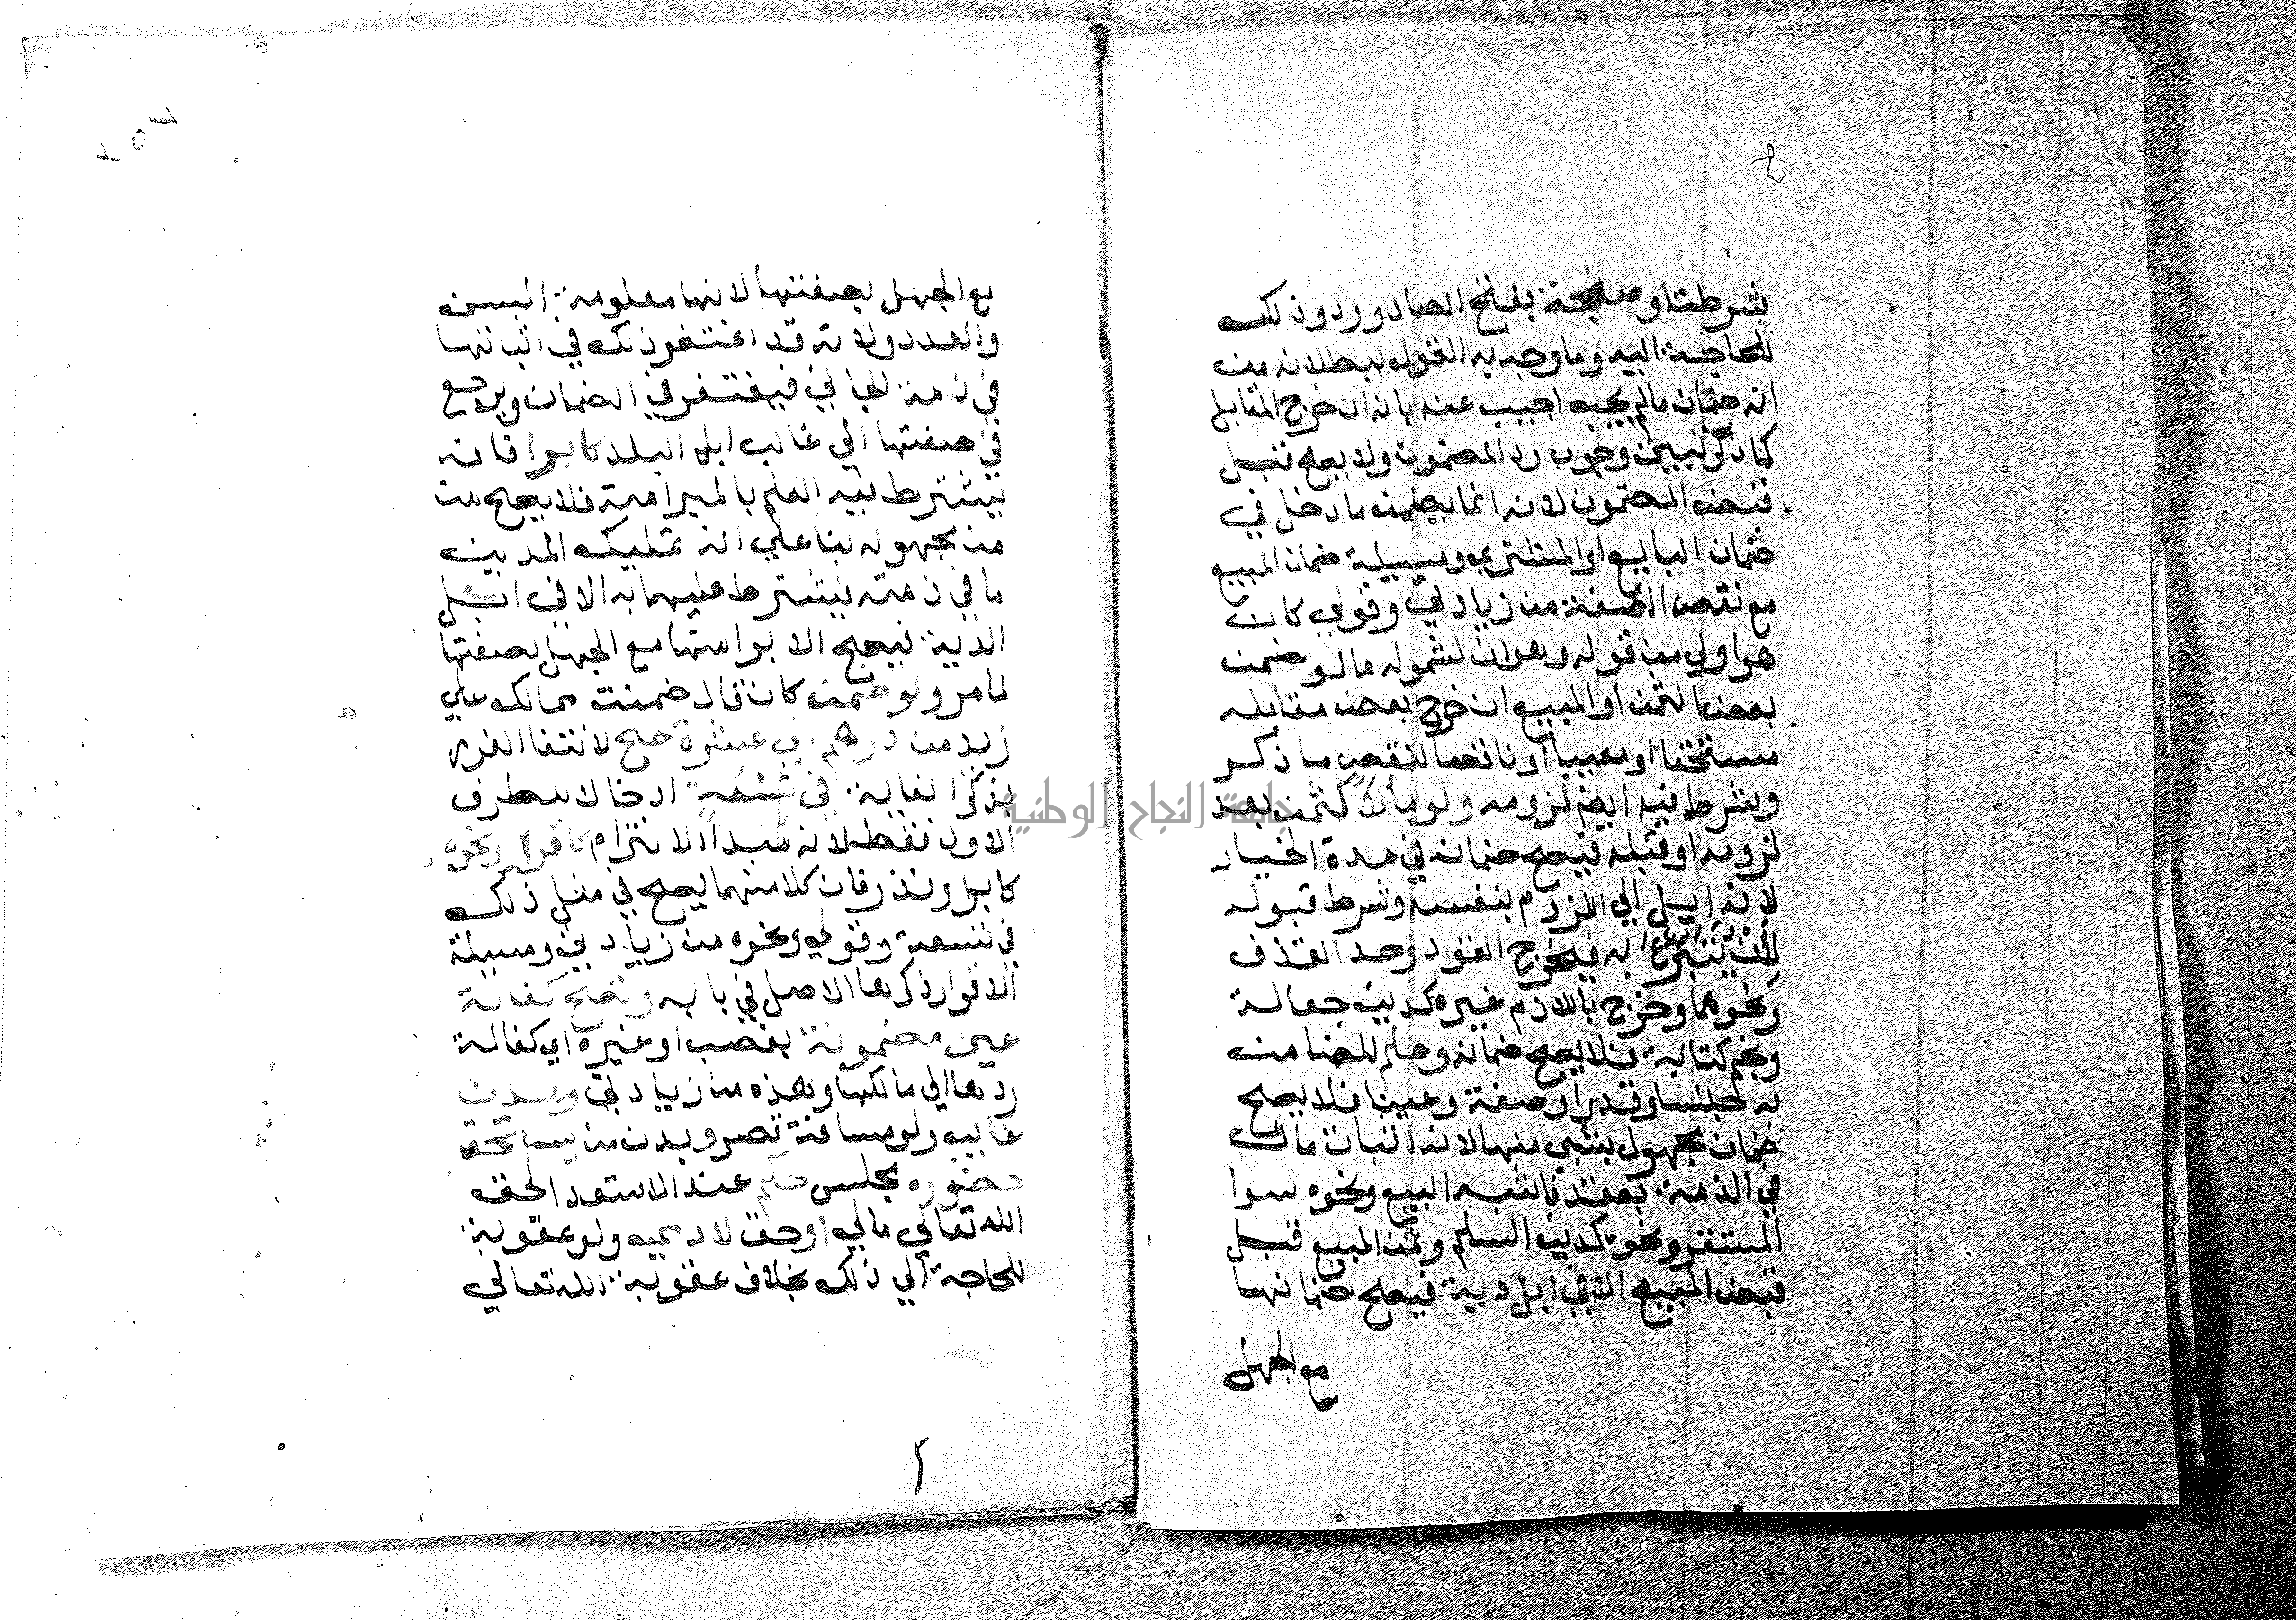 شرطت او صنجة بفتح الصاد ورد وذلك
للحاجة اليه وما وجه به القول ببطلانه من
انه ضمان مالم يجب اجيب عنه بانه ان خرج المقابل
كما ذكر تبين وجوب رد المضمون ولا يصح قبل
قبض المضمون لانه انما يضمن ما دخل في
ضمان البايع او المشتري ومسيلة ضمان المبيع
مع نقص الصفة من زيادتي وقولي كان
هو اولي من قوله وهو ان لشموله ما لو ضمن
بعض الثمن او المبيع ان خرج بعض مقابله
مستحقا او معيبا او ناقصا لنقص ما ذكر
وشرط فيه ايض لزومه ولو مآلا كثمن بعد
لزومه او قبله فيصح ضمانه في مدة الخيار
لانه ايل الي اللزوم بنفسه وشرط قبوله
لأن يتبرع به فيخرج القود وحد القذف
ونحوهما وخرج باللازم غيره كدين جعالة
ونجم كتابة فلا يصح ضمانه وعلم للضامن
به جنسا وقدرا وصفة وعينا فلا يصح
ضمان مجهول بشي منها لانه اثبات مال
في الذمة بعقد فاشبه البيع ونحوه سوا
المستقر ونحوه كدين السلم وثمن المبيع قبل
قبض المبيع الا في ابل دية فيصح ضمانها
مع الجهل
مع الجهل بصفتها لانها معلومة السن
والعدد ولانه قد اغتفر ذلك في اثباتها
في ذمة الجاني فيغتفر في الضمان ويرجع
في صفتها الي غالب ابل البلد كابرا فانه
يشترط فيه العلم بالمبرا منه فلا يصح من
من مجهول بنا علي انه تمليك المدين
ما في ذمته فيشترط عليهما به الا في ابل
الدية فيصح الابرا منها مع الجهل بصفتها
لما مر ولو ضمن كان قال ضمنت مما لك علي
زيد من درهم الي عشرة صح لانتفا الغرر
بذكر الغاية في تسعة ادخالا للطرف
الاول فقط لانه مبدا الالتزام كاقرار ونحوه
كابرا ونذر فان كلا منهما يصح في مثل ذلك
في تسعة وقولي ونحوه من زيادتي ومسيلة
الاقرار ذكرها الاصل في بابه وتصح كفالة
عين مضمونة بغصب او غيره اي كفالة
ردها الي مالكها وهذه من زيادتي وبدن
غايب ولو مسافة قصر وبدن من يستحق
حضوره مجلس حكم عند الاستعدا لحق
الله تعالي مالي او حق لادميه ولو عقوبة
للحاجة الي ذلك بخلاف عقوبة الله تعالي
جامعة النجاح الوطنية